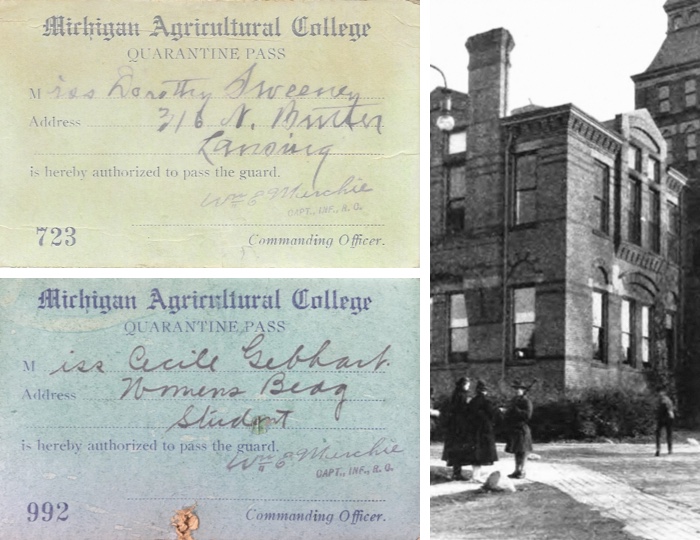 Michigan Agricultural College
QUARANTINE PASS
Miss Dorothy Sweeney
Address 316 N. Butler
Lansing
is hereby authorized to pass the guard.
Wm E Murchie
CAPT., INF., R. C.
723 Commanding Officer.
Michigan Agricultural College
QUARANTINE PASS
Miss Cecile Gebhart.
Address Womens Bldg
Student
is hereby authorized to pass the guard.
Wm E Murchie
CAPT., INF., R. C.
992 Commanding Officer.